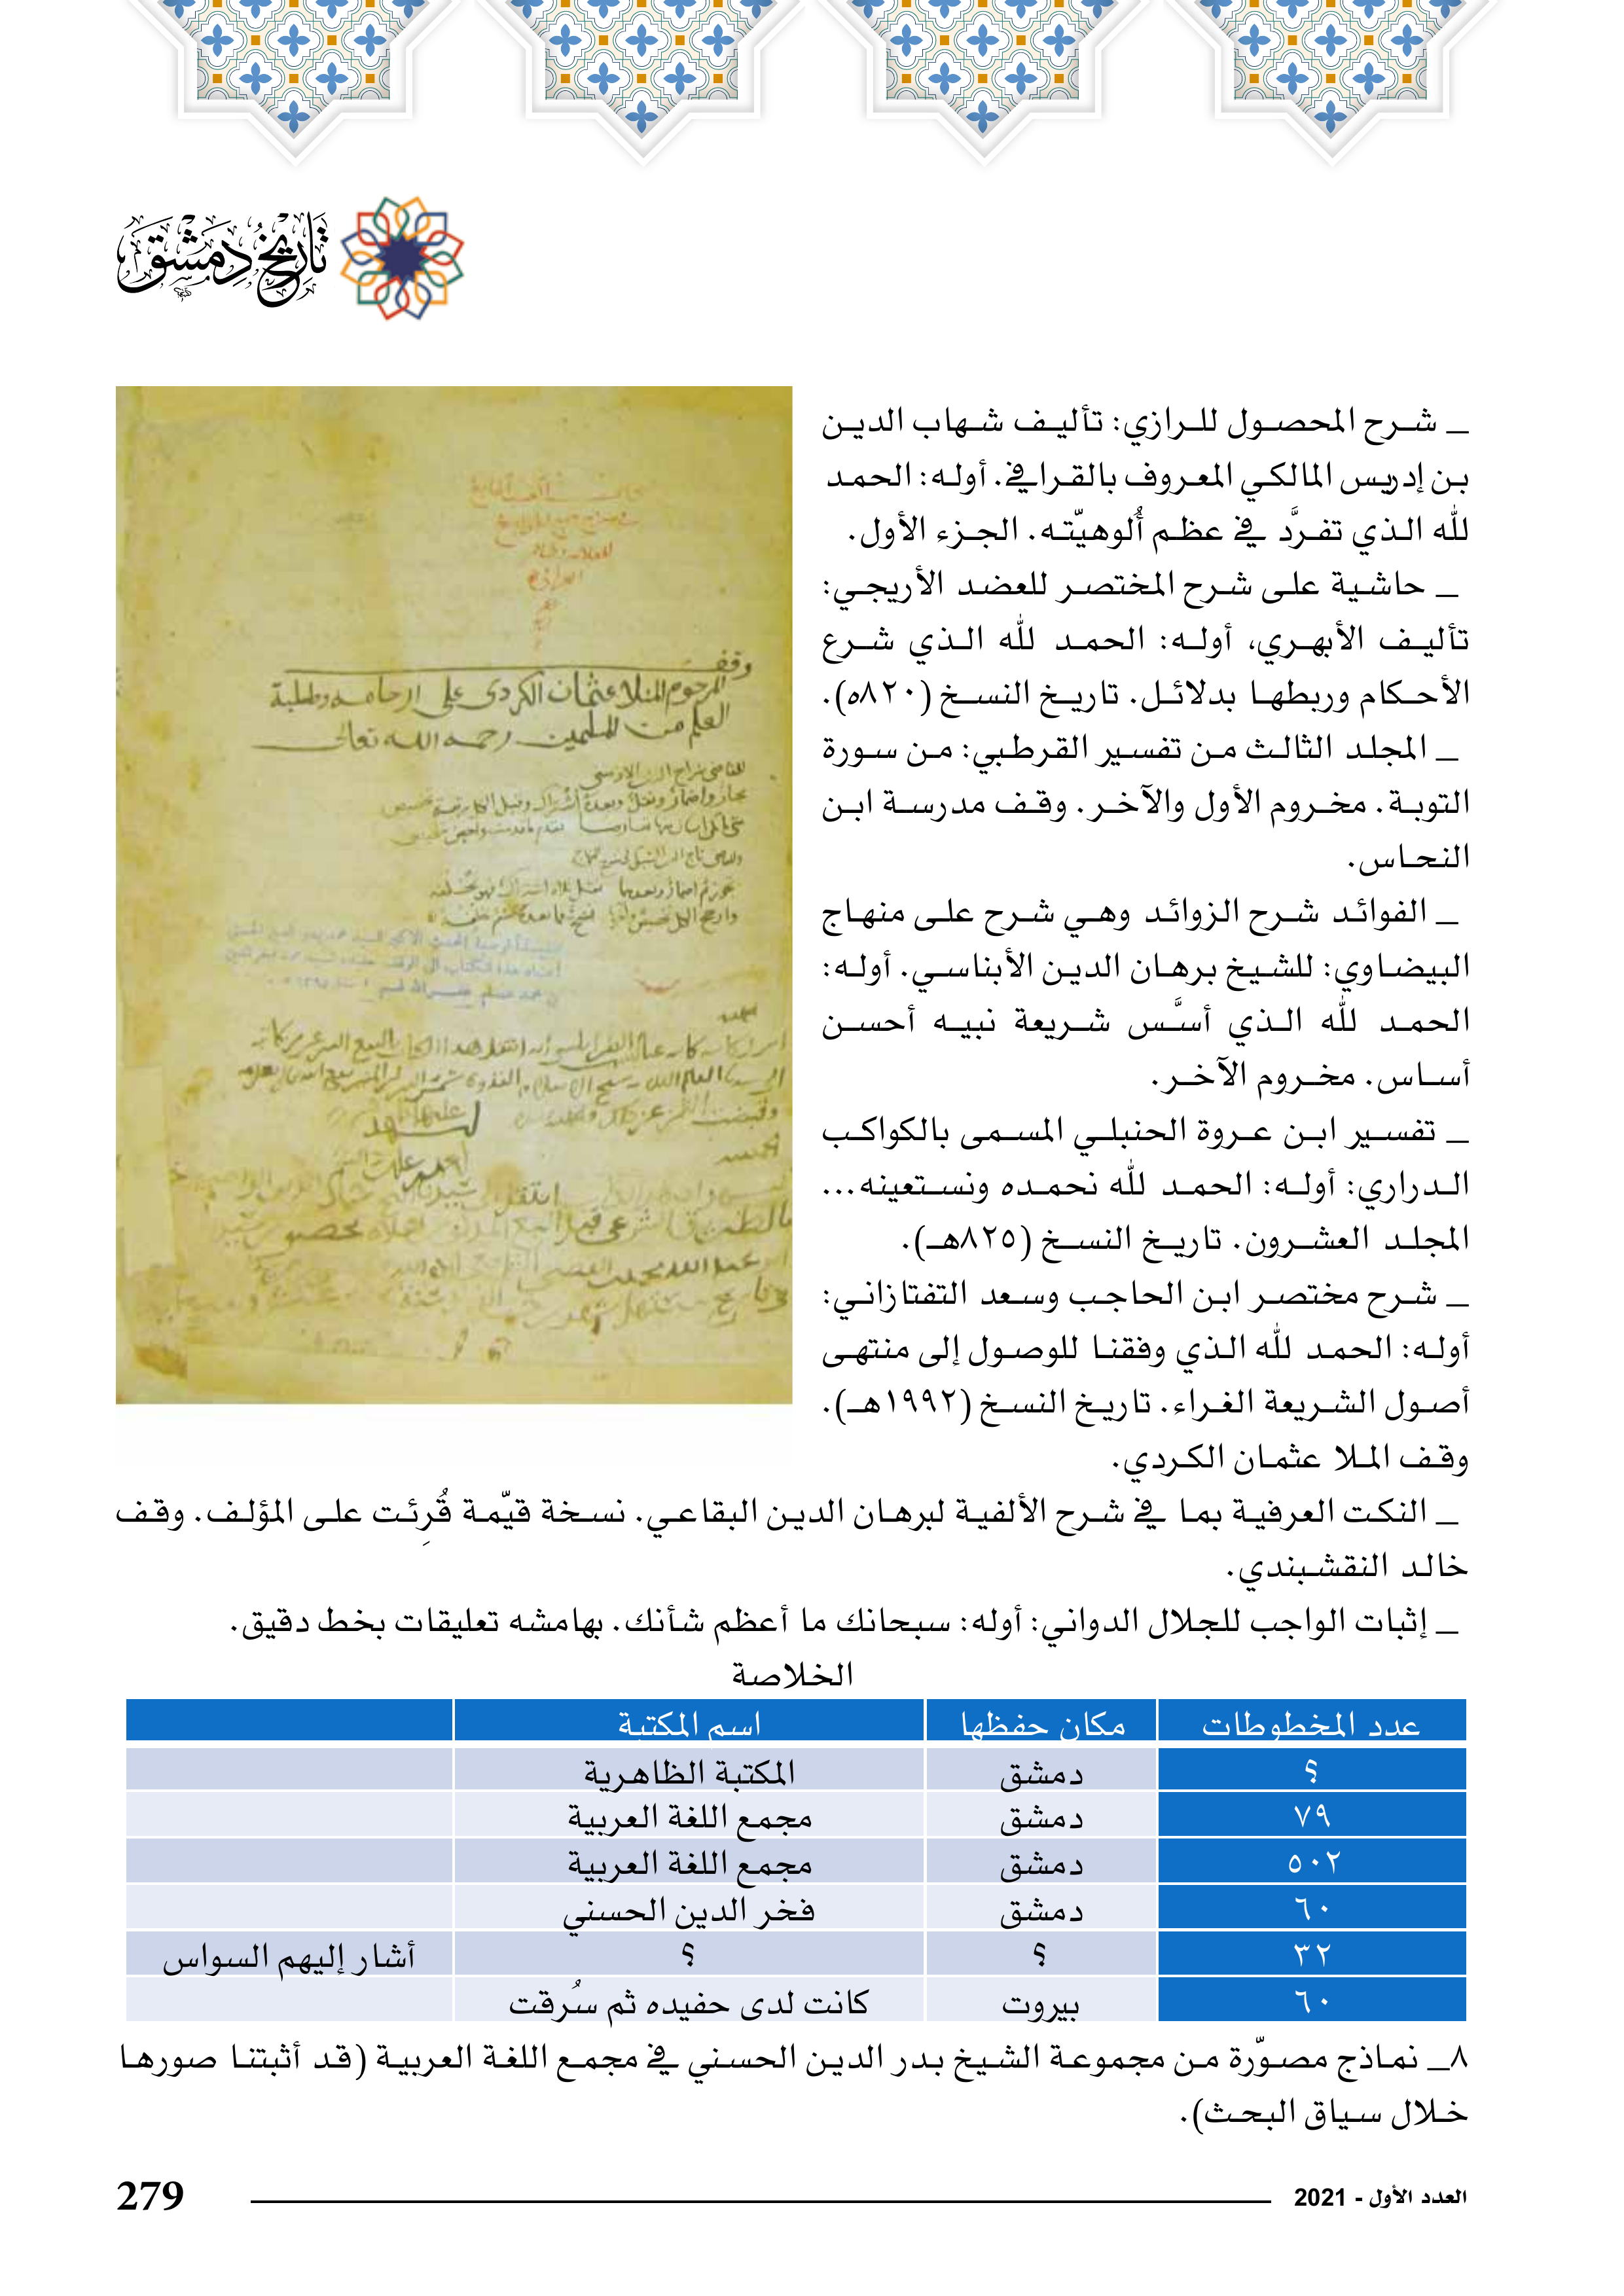 تاريخ دمشق
_ شرح المحصول للرازي: تأليف شهاب الدين
بن إدريس المالكي المعروف بالقرافي. أوله: الحمد
لله الذي تفرَّد في عظم أُلوهيّته. الجزء الأول.
_ حاشية على شرح المختصر للعضد الأريجي:
تأليف الأبهري، أوله: الحمد لله الذي شرع
الأحكام وربطها بدلائل. تاريخ النسخ (٨٢٠ه).
_ المجلد الثالث من تفسير القرطبي: من سورة
التوبة. مخروم الأول والآخر. وقف مدرسة ابن
النحاس.
_ الفوائد شرح الزوائد وهي شرح على منهاج
البيضاوي: للشيخ برهان الدين الأبناسي. أوله:
الحمد لله الذي أسَّس شريعة نبيه أحسن
أساس. مخروم الآخر.
_ تفسير ابن عروة الحنبلي المسمى بالكواكب
الدراري: أوله: الحمد لله نحمده ونستعينه...
المجلد العشرون. تاريخ النسخ (٨٢٥هـ).
_ شرح مختصر ابن الحاجب وسعد التفتازاني:
أوله: الحمد لله الذي وفقنا للوصول إلى منتهى
أصول الشريعة الغراء. تاريخ النسخ (١٩٩٢هـ).
وقف الملا عثمان الكردي.
وقف
المرحوم المنلا عثمان الكردي على ارحامه وطلبة
العلم من المسلمين رحمه الله تعالى
_ النكت العرفية بما في شرح الألفية لبرهان الدين البقاعي. نسخة قيّمة قُرِئت على المؤلف. وقف
خالد النقشبندي.
_ إثبات الواجب للجلال الدواني: أوله: سبحانك ما أعظم شأنك. بهامشه تعليقات بخط دقيق.
الخلاصة
عدد المخطوطات مكان حفظها اسم المكتبة
؟ دمشق المكتبة الظاهرية
٧٩ دمشق مجمع اللغة العربية
٥٠٢ دمشق مجمع اللغة العربية
٦٠ دمشق فخر الدين الحسني
٣٢ ؟ ؟ أشار إليهم السواس
٦٠ بيروت كانت لدى حفيده ثم سُرقت
٨_ نماذج مصوّرة من مجموعة الشيخ بدر الدين الحسني في مجمع اللغة العربية (قد أثبتنا صورها
خلال سياق البحث).
العدد الأول - 2021
279